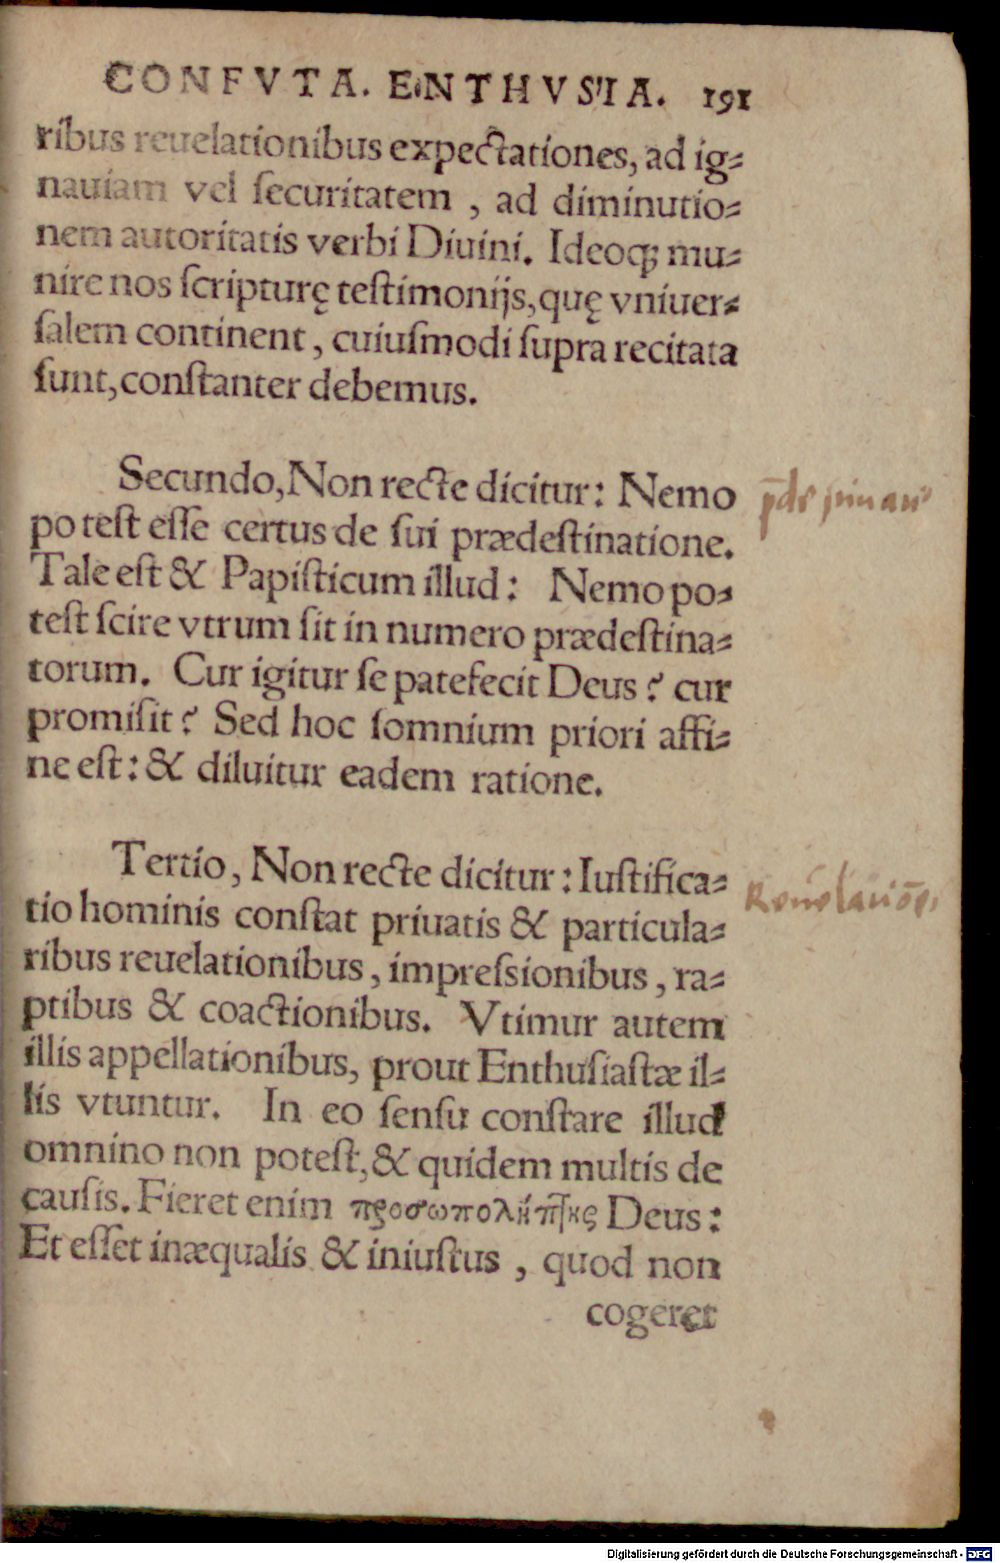 CONFVTA. ENTHVSIA. 191
ribus reuelationibus expectationes, ad ig⸗
nauiam vel ſecuritatem , ad diminutio⸗
nem autoritatis verbi Diuini. Ideoq; mu⸗
nire nos ſcripturę teſtimonijs, quę vniuer⸗
ſalem continent , cuiuſmodi ſupra recitata
ſunt, conſtanter debemus.
Secundo, Non recte dicitur: Nemo
poteſt eſſe certus de ſui prædeſtinatione.
Tale eſt & Papiſticum illud : Nemo po⸗
teſt ſcire vtrum ſit in numero prædeſtina⸗
torum. Cur igitur ſe patefecit Deus ? cur
promiſit ? Sed hoc ſomnium priori affi⸗
ne eſt : & diluitur eadem ratione.
Tertio, Non recte dicitur : Iuſtifica⸗
Reuelatiões
tio hominis conſtat priuatis & particula⸗
ribus reuelationibus , impreſsionibus , ra⸗
ptibus & coactionibus. Vtimur autem
illis appellationibus, prout Enthuſiaſtæ il⸗
lis vtuntur. In eo ſenſu conſtare illud
omnino non poteſt, & quidem multis de
cauſis. Fieret enim προσωπολήπτης Deus :
Et eſſet inæqualis & iniuſtus , quod non
cogeret
Digitalisierung gefördert durch die Deutsche Forschungsgemeinschaft - DFG